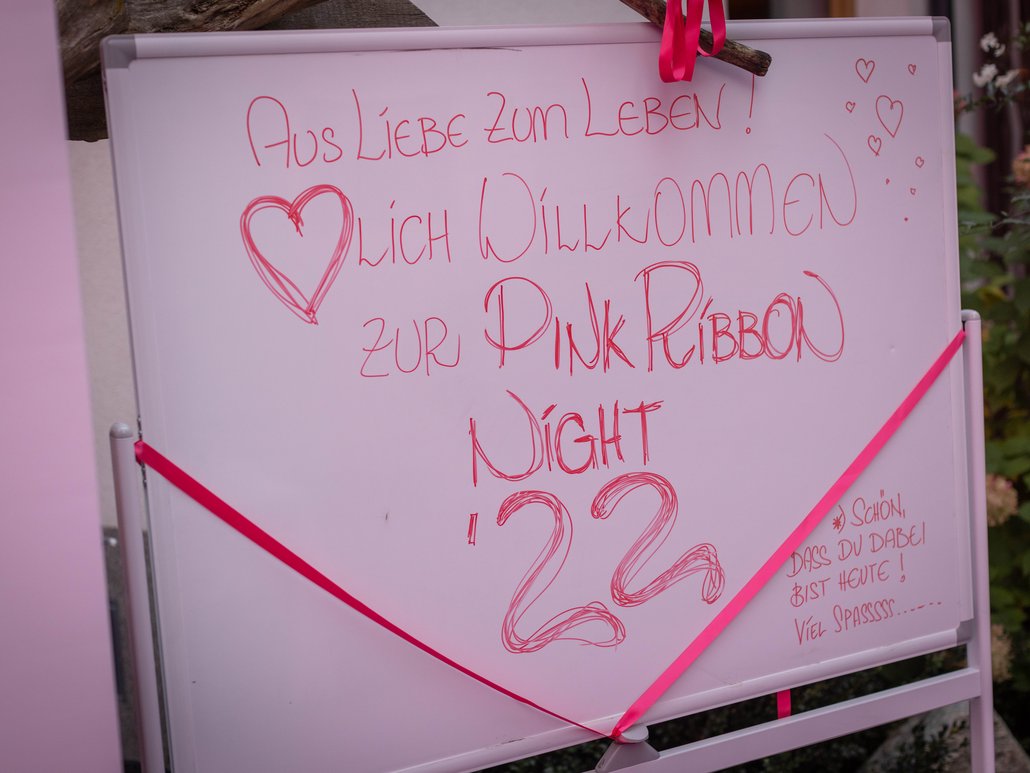 Aus Liebe zum Leben!
lich Willkommen
zur Pink Ribbon
Night
'22
*) Schön,
dass du dabei
bist heute!
Viel Spasssss.......